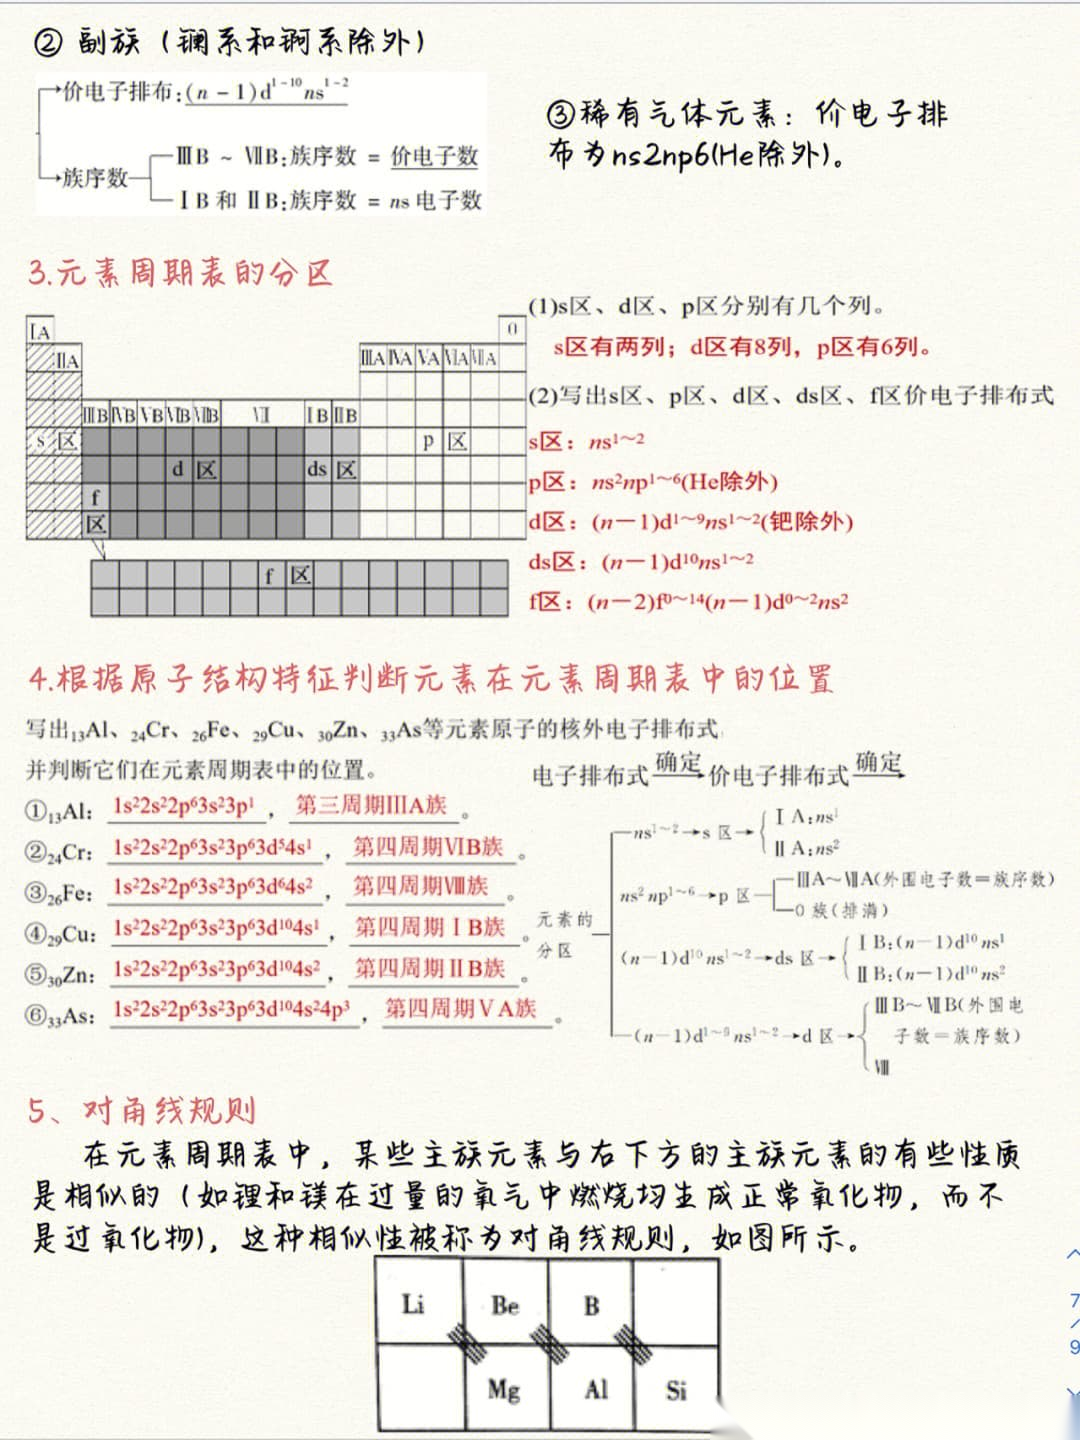 ② 副族（镧系和锕系除外）
价电子排布:(n－1)d¹⁻¹⁰ns¹⁻²
族序数
ⅢB ~ ⅦB:族序数 = 价电子数
ⅠB 和 ⅡB:族序数 = ns 电子数
③稀有气体元素：价电子排
布为ns2np6(He除外)。
3.元素周期表的分区
ⅠA 0
ⅡA ⅢA ⅣA ⅤA ⅥA ⅦA
ⅢB ⅣB ⅤB ⅥB ⅦB Ⅷ ⅠB ⅡB
s 区 p 区
d 区 ds 区
f
区
f 区
(1)s区、d区、p区分别有几个列。
s区有两列；d区有8列，p区有6列。
(2)写出s区、p区、d区、ds区、f区价电子排布式
s区：ns¹～²
p区：ns²np¹～⁶(He除外)
d区：(n－1)d¹～⁹ns¹～²(钯除外)
ds区：(n－1)d¹⁰ns¹～²
f区：(n－2)f⁰～¹⁴(n－1)d⁰～²ns²
4.根据原子结构特征判断元素在元素周期表中的位置
写出₁₃Al、₂₄Cr、₂₆Fe、₂₉Cu、₃₀Zn、₃₃As等元素原子的核外电子排布式
并判断它们在元素周期表中的位置。
①₁₃Al： 1s²2s²2p⁶3s²3p¹ ， 第三周期ⅢA族 。
②₂₄Cr： 1s²2s²2p⁶3s²3p⁶3d⁵4s¹ ， 第四周期ⅥB族 。
③₂₆Fe： 1s²2s²2p⁶3s²3p⁶3d⁶4s² ， 第四周期Ⅷ族 。
④₂₉Cu： 1s²2s²2p⁶3s²3p⁶3d¹⁰4s¹ ， 第四周期ⅠB族 。
⑤₃₀Zn： 1s²2s²2p⁶3s²3p⁶3d¹⁰4s² ， 第四周期ⅡB族 。
⑥₃₃As： 1s²2s²2p⁶3s²3p⁶3d¹⁰4s²4p³ ， 第四周期ⅤA族 。
电子排布式 确定→ 价电子排布式 确定→
元素的
分区
ns¹～²→s 区→
ⅠA:ns¹
ⅡA:ns²
ns²np¹～⁶→p 区
ⅢA～ⅦA(外围电子数＝族序数)
0 族(排满)
(n－1)d¹⁰ns¹～²→ds 区→
ⅠB:(n－1)d¹⁰ns¹
ⅡB:(n－1)d¹⁰ns²
(n－1)d¹～⁹ns¹～²→d 区→
ⅢB～ⅦB(外围电
子数＝族序数)
Ⅷ
5、对角线规则
在元素周期表中，某些主族元素与右下方的主族元素的有些性质
是相似的（如锂和镁在过量的氧气中燃烧均生成正常氧化物，而不
是过氧化物)，这种相似性被称为对角线规则，如图所示。
Li Be B
Mg Al Si
7
/
9